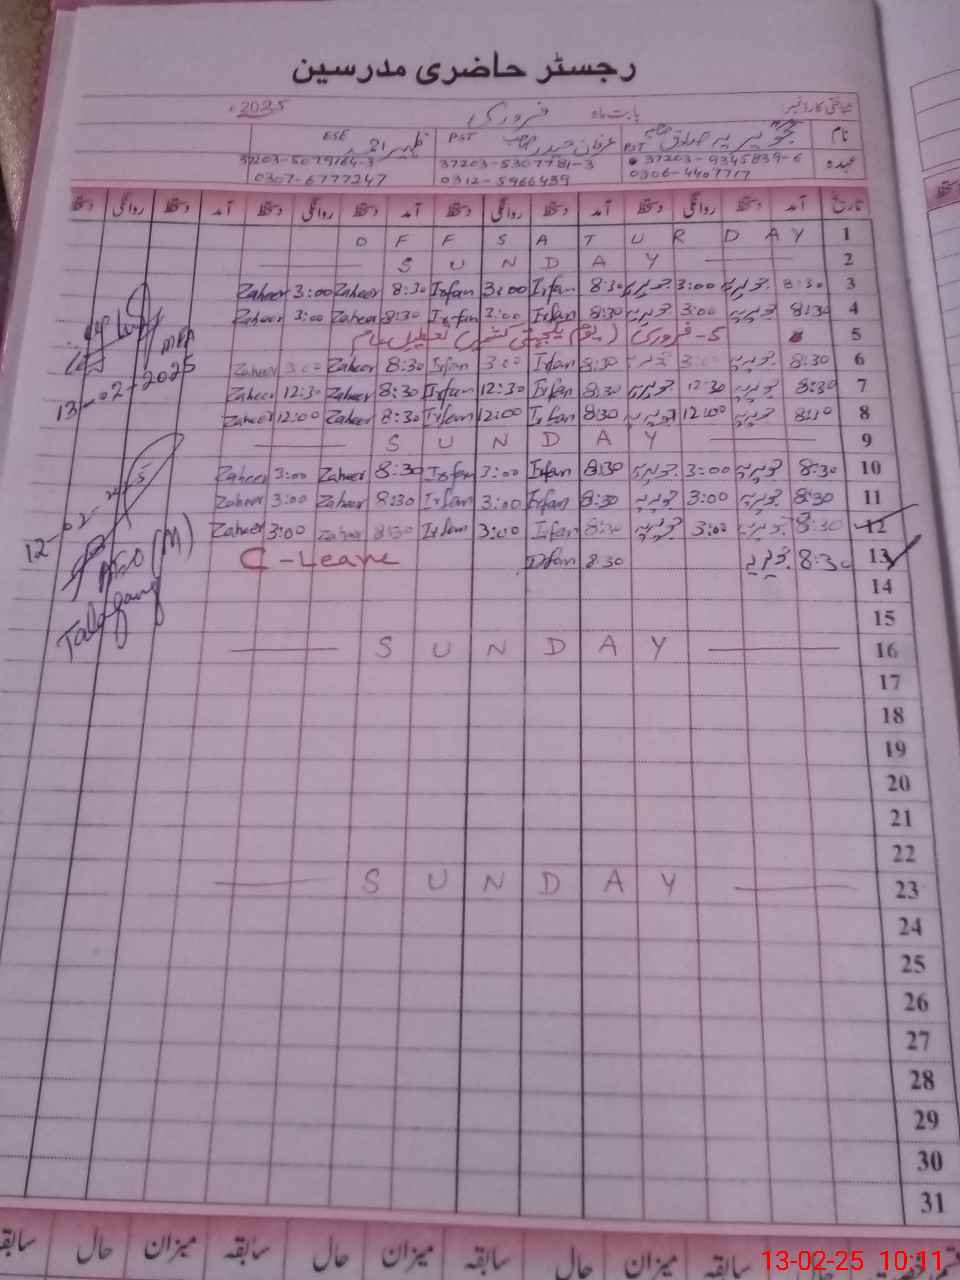 رجسٹر حاضری مدرسین
شناختی کارڈ نمبر: بابت ماہ فروری 2025ء
نام صدیق PST عرفان حیدر صاحب PST ظہیر احمد ESE
عہدہ 37203-9345839-6 37203-5307781-3 37203-5079164-3
0306-4407717 0312-5966439 0307-6777247
تاریخ آمد دستخط روانگی دستخط آمد دستخط روانگی دستخط آمد دستخط روانگی دستخط آمد دستخط روانگی دستخط
1 OFF SATURDAY
2 SUNDAY
3 8:30 3:00 8:30 Irfan 3:00 Irfan 8:30 Zaheer 3:00 Zaheer
4 8:30 3:00 8:30 Irfan 3:00 Irfan 8:30 Zaheer 3:00 Zaheer
5 5-فروری (یوم یکجہتی کشمیر) تعطیل عام
6 8:30 3:00 8:30 Irfan 3:00 Irfan 8:30 Zaheer 3:00 Zaheer
7 8:30 12:30 8:30 Irfan 12:30 Irfan 8:30 Zaheer 12:30 Zaheer
8 12:00 8:30 Irfan 12:00 Irfan 8:30 Zaheer 12:00 Zaheer
9 SUNDAY
10 8:30 3:00 8:30 Irfan 3:00 Irfan 8:30 Zaheer 3:00 Zaheer
11 8:30 3:00 8:30 Irfan 3:00 Irfan 8:30 Zaheer 3:00 Zaheer
12 8:30 3:00 8:30 Irfan 3:00 Irfan 8:30 Zaheer 3:00 Zaheer
13 8:30 8:30 Irfan C-Leave
14
15
16 SUNDAY
17
18
19
20
21
22
23 SUNDAY
24
25
26
27
28
29
30
31
MEA
13-02-2025
12-02-2025
AEO (M)
Talagang
سابقہ میزان حال سابقہ میزان حال سابقہ میزان حال سابقہ
13-02-25 10:11